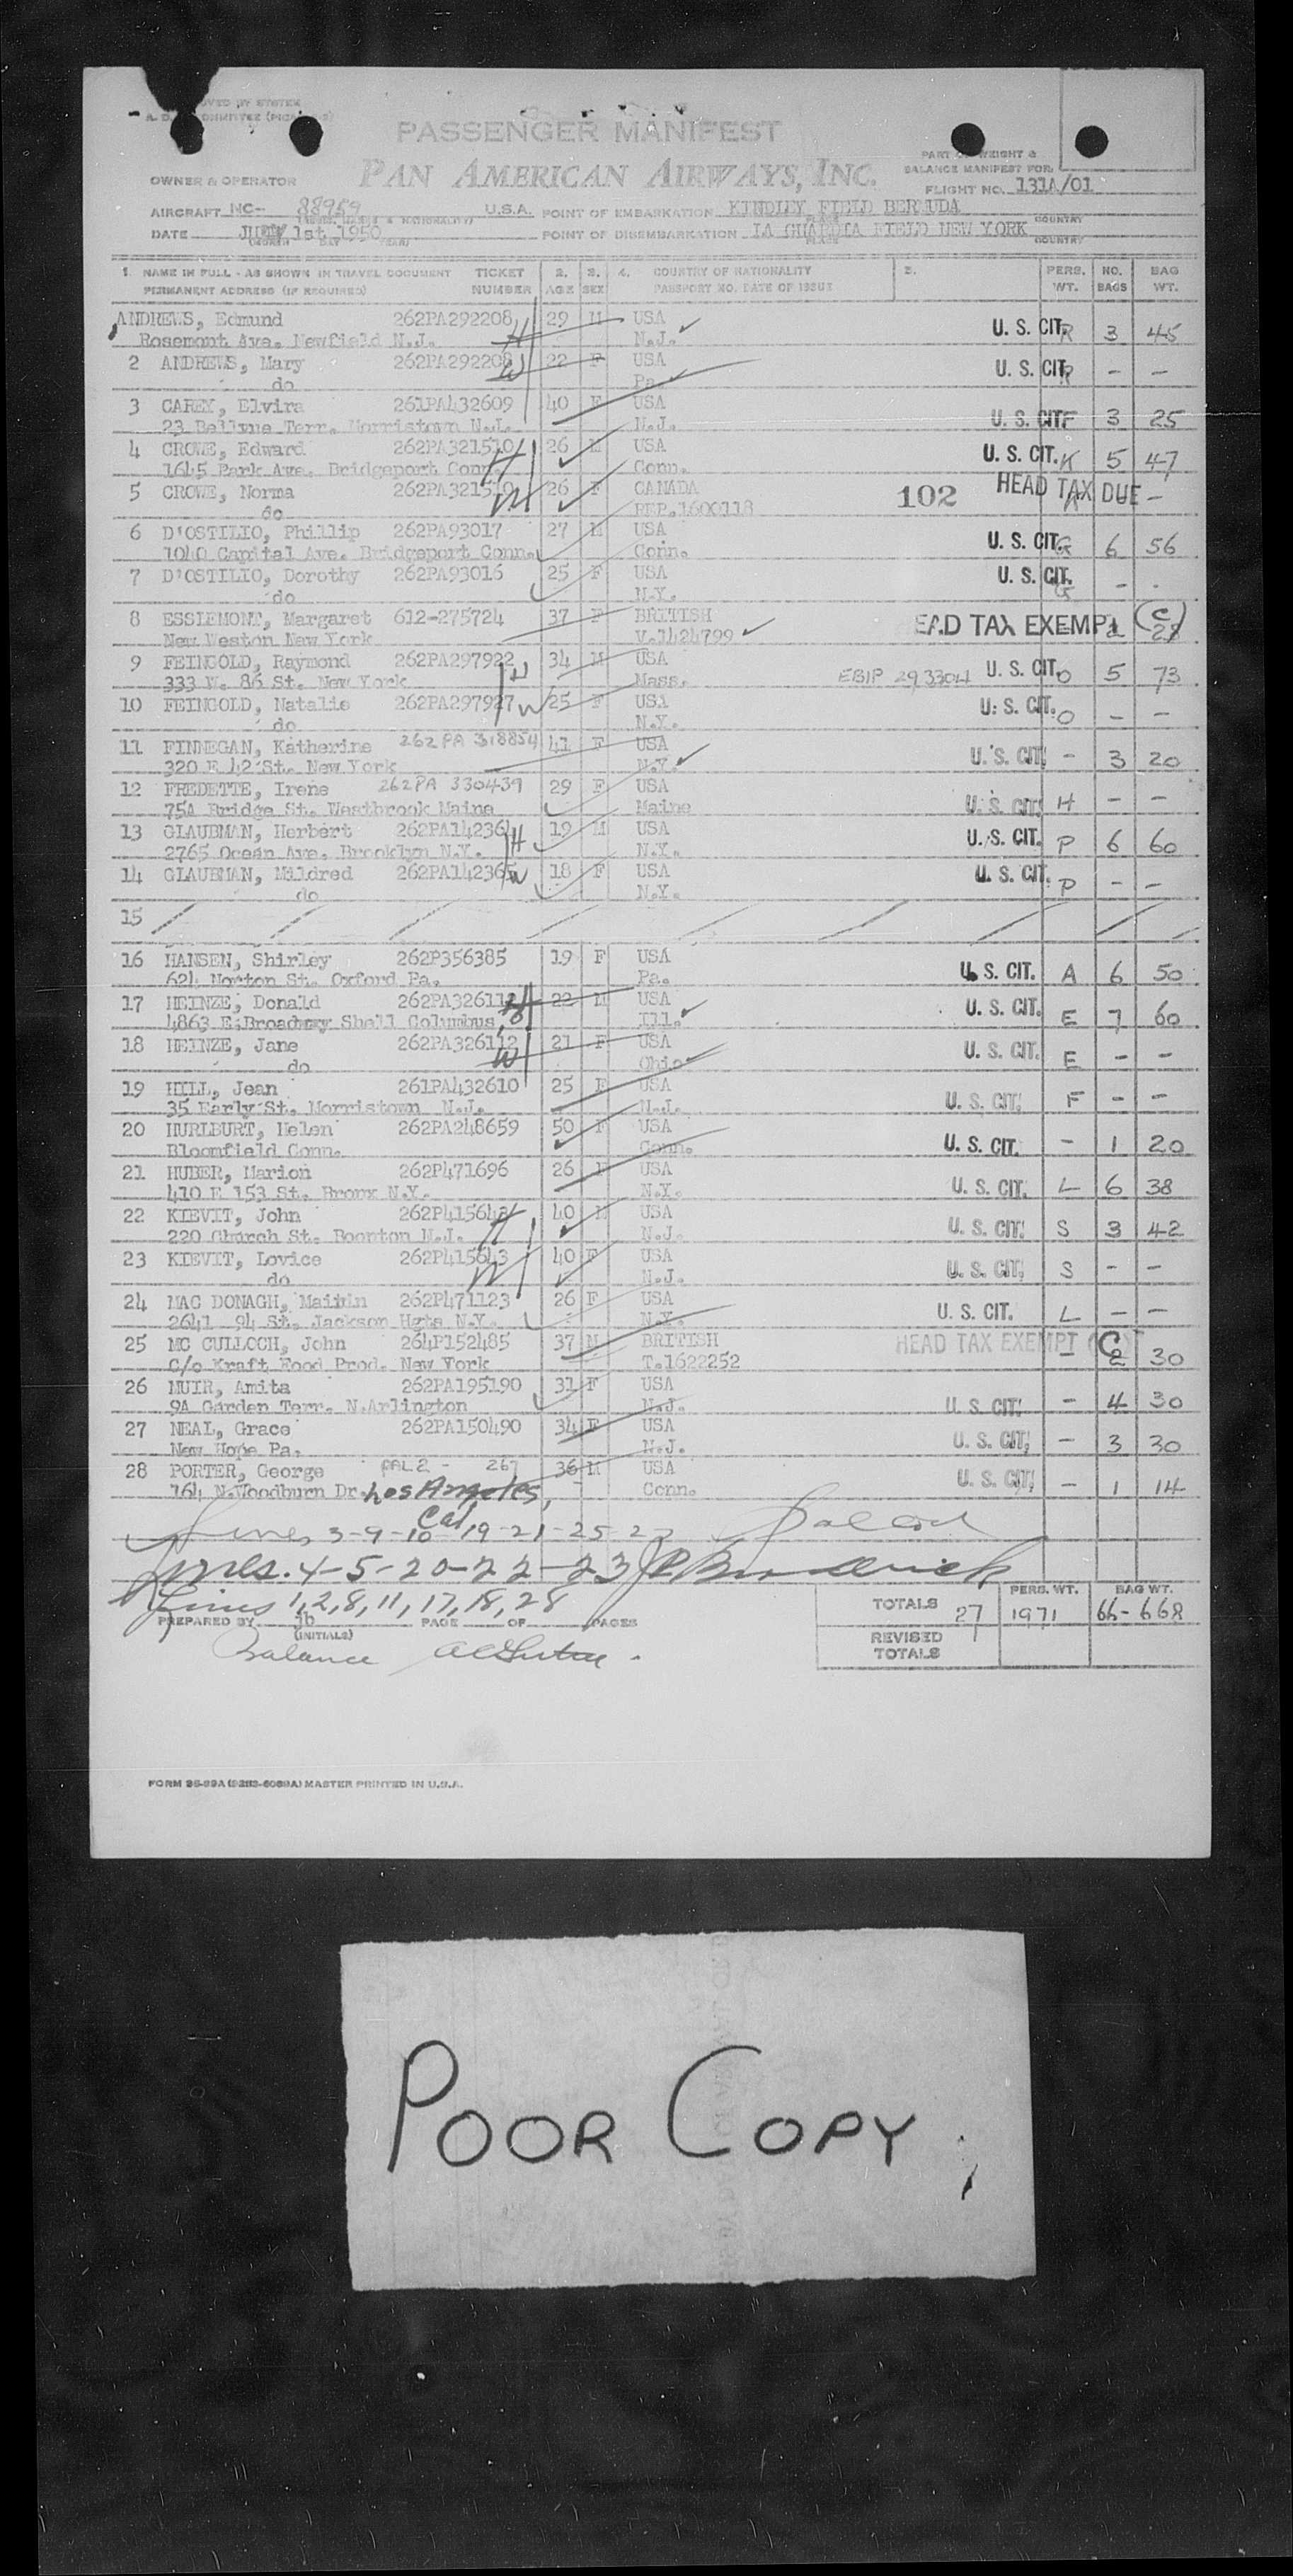 PASSENGER MANIFEST
PAN AMERICAN AIRWAYS, INC.
OWNER & OPERATOR
PART OF WEIGHT &
BALANCE MANIFEST FOR
FLIGHT NO. 131A/01
AIRCRAFT NC- 88959 U.S.A. POINT OF EMBARKATION KINDLEY FIELD BERMUDA
DATE 1st 1950 POINT OF DISEMBARKATION LA GUARDIA FIELD NEW YORK
1. NAME IN FULL - AS SHOWN IN TRAVEL DOCUMENT TICKET 2. 3. 4. COUNTRY OF NATIONALITY 5. PERS. NO. BAG
PERMANENT ADDRESS (IF REQUIRED) NUMBER AGE SEX PASSPORT NO. DATE OF ISSUE WT. BAGS WT.
ANDREWS, Edmund 262PA292208 29 M USA U. S. CIT. R 3 45
Rosemont Ave. Newfield N.J. H N.J.
2 ANDREWS, Mary 262PA292208 22 F USA U. S. CIT. R - -
do W Pa.
3 CAREY, Elvira 261PA432609 40 F USA U. S. CIT. F 3 25
23 Bellvue Terr. Morristown N.J. N.J.
4 CROWE, Edward 262PA321510 26 M USA U. S. CIT. K 5 47
1645 Park Ave. Bridgeport Conn. H Conn.
5 CROWE, Norma 262PA321510 26 F CANADA 102 HEAD TAX DUE -
do W REP.1600118
6 D'OSTILIO, Phillip 262PA93017 27 M USA U. S. CIT. G 6 56
1040 Capital Ave. Bridgeport Conn. Conn.
7 D'OSTILIO, Dorothy 262PA93016 25 F USA U. S. CIT. G -
do N.Y.
8 ESSLEMONT, Margaret 612-275724 37 F BRITISH EAD TAX EXEMPT (C)
New Weston New York V.1424799
9 FEINGOLD, Raymond 262PA297922 34 M USA EBIP 293304 U. S. CIT. O 5 73
333 W. 86 St. New York H Mass.
10 FEINGOLD, Natalie 262PA297927 W 25 F USA U. S. CIT. O - -
do N.Y.
11 FINNEGAN, Katherine 262 PA 318854 41 F USA U. S. CIT. - 3 20
320 E 42 St. New York N.Y.
12 FREDETTE, Irene 262PA 330439 29 F USA U. S. CIT. H - -
75A Bridge St. Westbrook Maine Maine
13 GLAUBMAN, Herbert 262PA142364 19 M USA U. S. CIT. P 6 60
2765 Ocean Ave. Brooklyn N.Y. H N.Y.
14 GLAUBMAN, Mildred 262PA142365 W 18 F USA U. S. CIT. P - -
do N.Y.
15
16 HANSEN, Shirley 262P356385 19 F USA U. S. CIT. A 6 50
624 Norton St. Oxford Pa. Pa.
17 HEINZE, Donald 262PA326112 22 M USA U. S. CIT. E 7 60
4863 E.Broadway Shell Columbus, Ill.
18 HEINZE, Jane 262PA326112 21 F USA U. S. CIT. E - -
do W Ohio
19 HILL, Jean 261PA432610 25 F USA U. S. CIT. F - -
35 Early St. Morristown N.J. N.J.
20 HURLBURT, Helen 262PA248659 50 F USA U. S. CIT. - 1 20
Bloomfield Conn. Conn.
21 HUBER, Marion 262P471696 26 F USA U. S. CIT. L 6 38
410 E 153 St. Bronx N.Y. N.Y.
22 KIEVIT, John 262P415643 40 M USA U. S. CIT. S 3 42
220 Church St. Boonton N.J. H N.J.
23 KIEVIT, Lovice 262P415643 40 F USA U. S. CIT. S - -
do W N.J.
24 MAC DONAGH, 262P471123 26 F USA U. S. CIT. L - -
2641 94 St. Jackson Hgts N.Y. N.Y.
25 MC CULLOCH, John 264P152485 37 M BRITISH HEAD TAX EXEMPT (C) - 2 30
C/o Kraft Food Prod. New York T.1622252
26 MUIR, Amita 262PA195190 31 F USA U. S. CIT. - 4 30
9A Garden Terr. N.Arlington N.J.
27 NEAL, Grace 262PA150490 34 F USA U. S. CIT. - 3 30
New Hope Pa. N.J.
28 PORTER, George PAL2 - 267 36 M USA U. S. CIT. - 1 14
164 N.Woodburn Dr. Los Angeles, Conn.
Cal
Lines 3-9-10-19-21-25-27
Lines. 4-5-20-22-23
Lines 1,2,8,11,17,18,28
PREPARED BY jb PAGE OF PAGES
(INITIALS)
Balance
PERS. WT. BAG WT.
TOTALS 27 1971 66-668
REVISED
TOTALS
FORM 26-99A (9293-6089A) MASTER PRINTED IN U.S.A.
POOR COPY